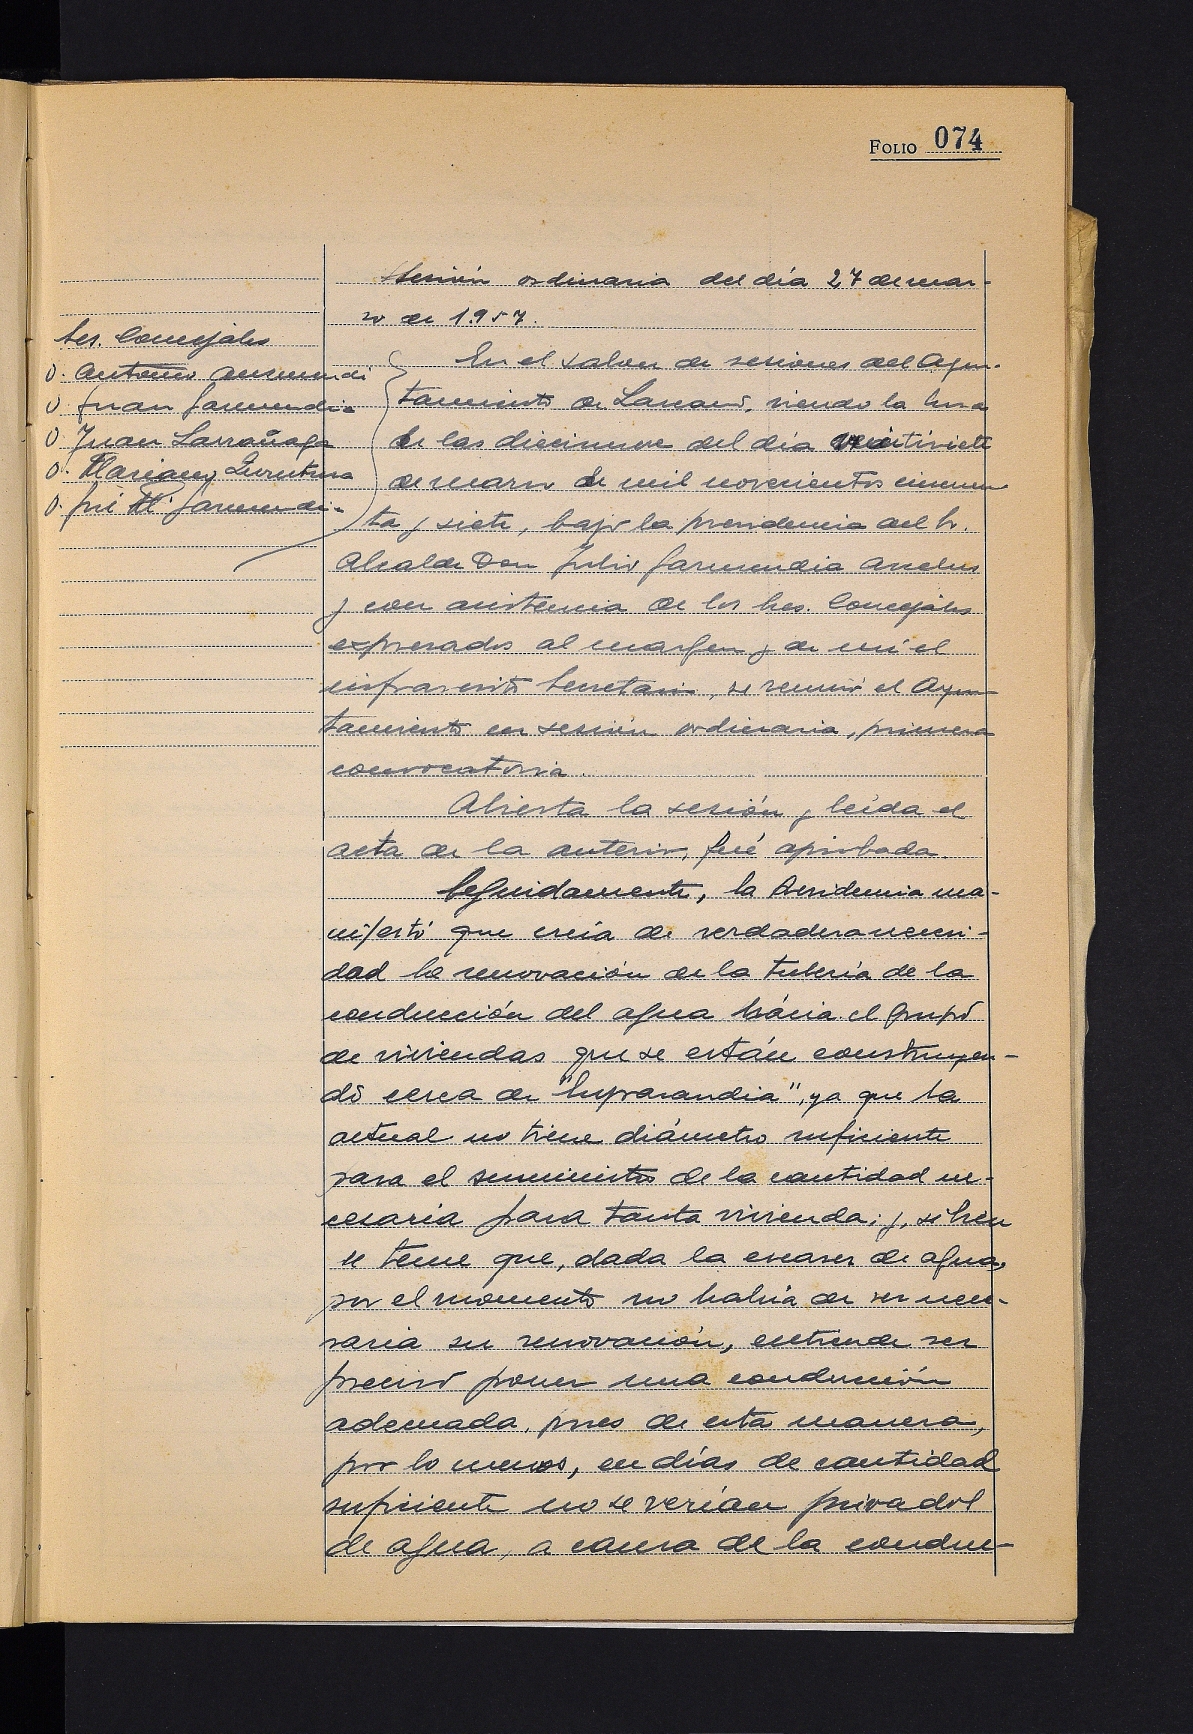 FOLIO 074
Sesión ordinaria del día 27 de mar-
zo de 1.957.
Srs. Concejales
D. Antonio
D. Juan Garmendia
D. Juan Larrañaga
D. Mariano
D. José M. Garmendia
En el salon de sesiones del Ayun-
tamiento de Lazcano, siendo la hora
de las diecinueve del día veintisiete
de marzo de mil novecientos cincuen
ta y siete, bajo la presidencia del Sr.
Alcalde Don Julio Garmendia
y con asistencia de los Sres. Concejales
expresados al margen y de mi el
infrascrito Secretario, se reunió el Ayun-
tamiento en sesión ordinaria, primera
convocatoria.
Abierta la sesión y leída el
acta de la anterior, fué aprobada.
Seguidamente, la Presidencia ma-
nifestó que creía de verdadera necesi-
dad la renovación de la tubería de la
conducción del agua hácia el Grupo
de viviendas que se están construyen-
do cerca de "Luprarandia", ya que la
actual no tiene diámetro suficiente
para el suministro de la cantidad ne-
cesaria para tanta vivienda; y, si bien
se teme que, dada la escasez de agua,
por el momento no había de ser nece-
saria su renovación, entiende ser
preciso poner una conducción
adecuada, pues de esta manera,
por lo menos, en días de cantidad
suficiente no se verían privados
de agua, a causa de la conduc-